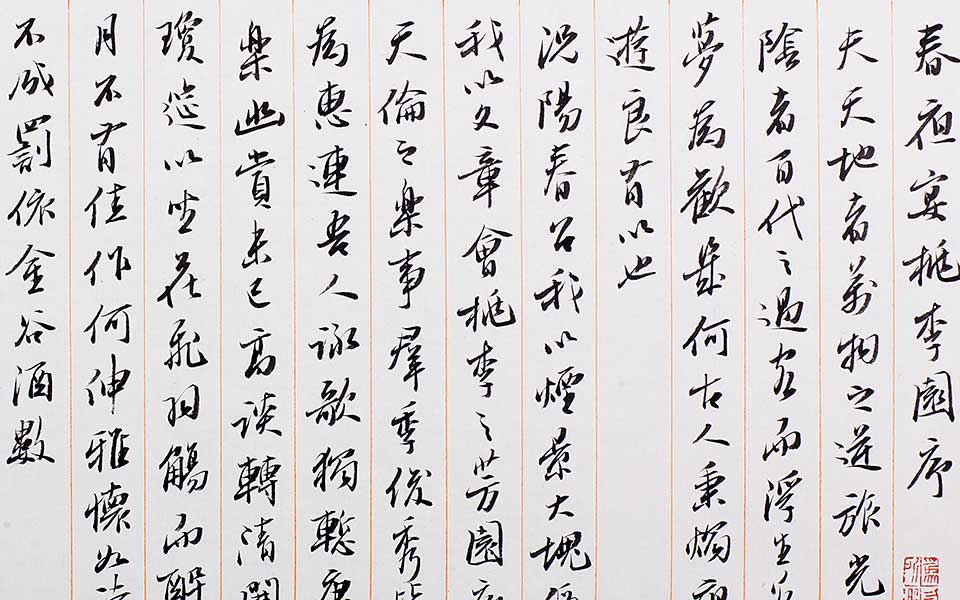 春夜宴桃李園序
夫天地者萬物之逆旅光
陰者百代之過客而浮生若
夢為歡幾何古人秉燭夜
遊良有以也
況陽春召我以煙景大塊假
我以文章會桃李之芳園序
天倫之樂事群季俊秀皆
為惠連吾人詠歌獨慙康
樂幽賞未已高談轉清開
瓊筵以坐花飛羽觴而醉
月不有佳作何伸雅懷如詩
不成罰依金谷酒數